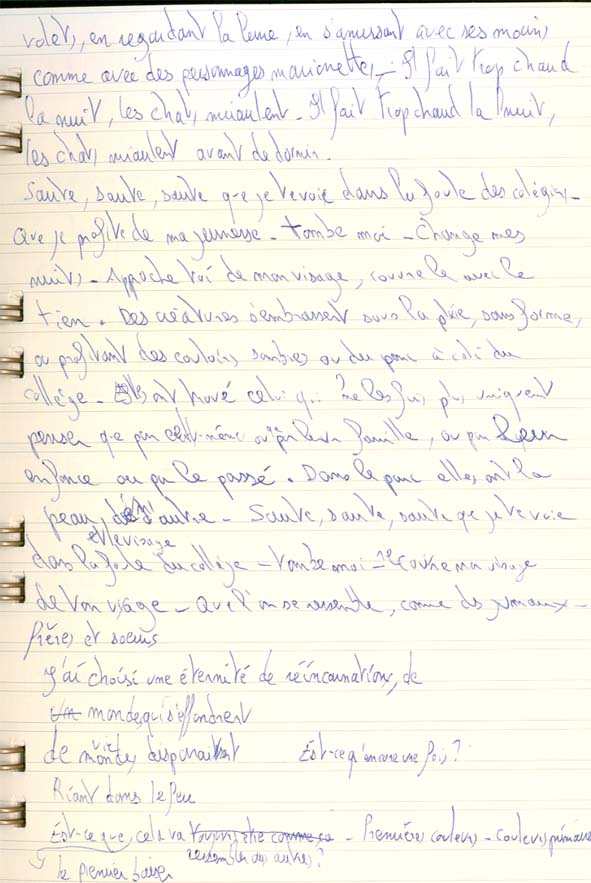 volets, en regardant la lune, en s'amusant avec ses mains
comme avec des personnages marionnettes. Il fait trop chaud
la nuit, les chats miaulent. Il fait trop chaud la nuit,
les chats miaulent avant de dormir.
Saute, saute, saute que je te voie dans la foule des colégiens.
Que je profite de ma jeunesse. Tombe moi. Change mes
nuits. Approche toi de mon visage, couvre le avec le
tien. Des créatures s'embrassent sous la pluie, sans forme,
ou profitant des couloirs sombres ou du parc à coté du
collège. Elles ont trouvé celui qui ne les fais plus
penser que par ou par leur famille, ou par leur
enfance ou par le passé. Dans le parc elles ont la
peau, d'autre. Saute, saute, saute que je te voie
et le visage
dans la foule du collège. Tombe moi. Couvre mon visage
de ton visage. Que l'on se ressemble, comme des jumeaux.
frères et soeurs
J'ai choisi une éternité de réincarnations, de
mondes qui s'effondrent
de mondes disparaissent Est-ce qu'encore une fois ?
vie
Riant dans le feu
Est-ce que, cela va toujours être comme ça - Premières couleurs - couleurs primaires
ressembler aux autres ?
le premier baiser